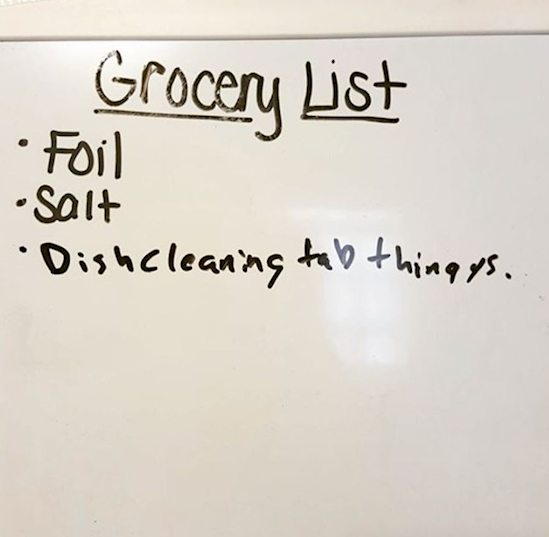 Grocery List
• Foil
• Salt
• Dishcleaning tab thingys.